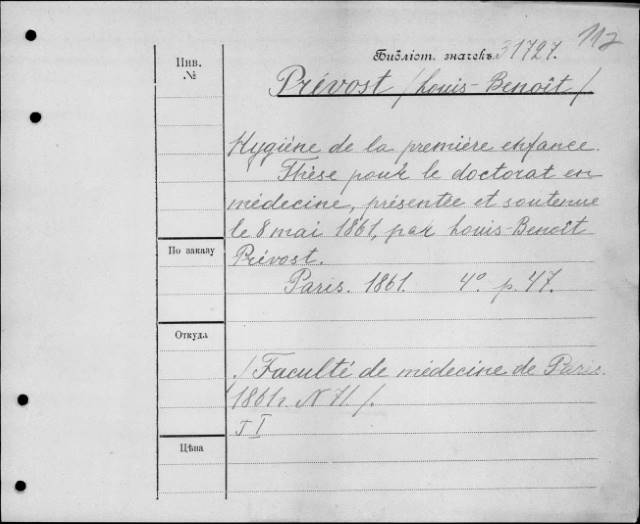 112
Библіот. значекъ 31727.
Инв.
№
Prévost /Louis-Benoît/
Hygiène de la première enfance.
Thèse pour le doctorat en
médecine, présentée et soutenue
le 8 mai 1861, par Louis-Benoît
По заказу
Prévost.
Paris. 1861. 4° p. 47.
Откуда
/Faculté de médecine de Paris.
1861. N 71/.
Цѣна